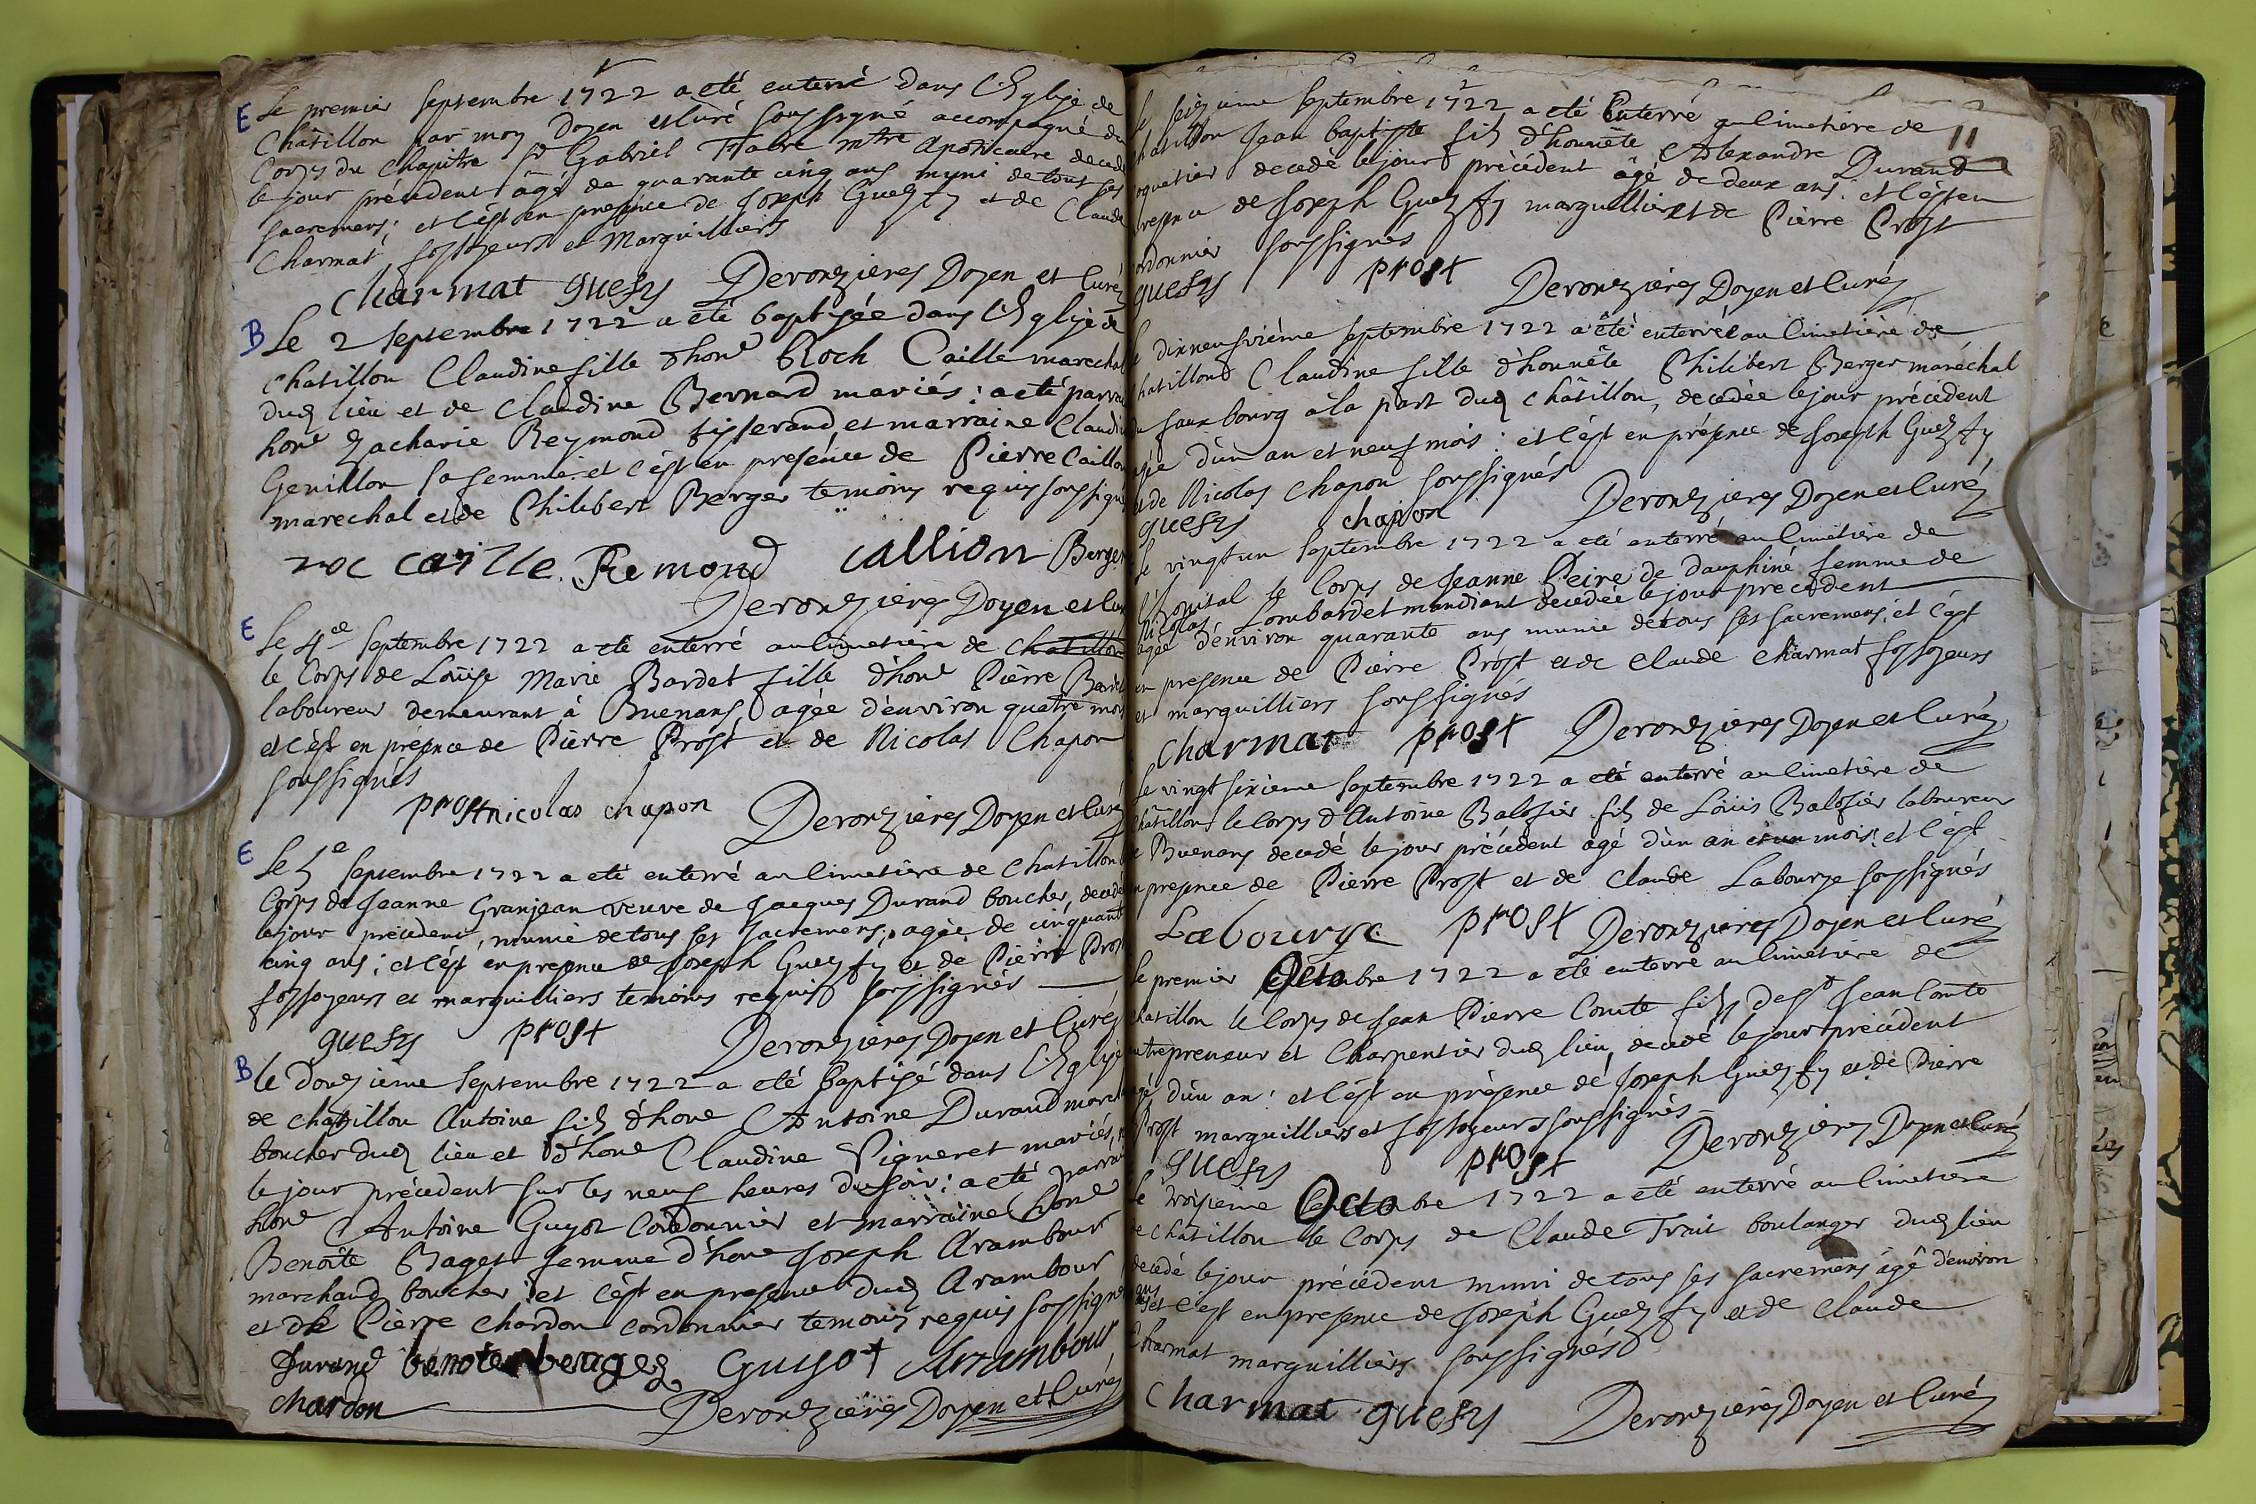 E Le premier septembre 1722 a eté enterré dans l'Eglise de
Châtillon par moy Doyen et curé soussigné accompagné du
Corps du Chapitre Sr Gabriel Fabre mtre Apoticaire decedé
le jour précedent âgé de quarante cinq ans muni de tout ses
sacremens; et c'est en presence de Joseph Guesfy et de Claude
Charmat fossoyeurs et Marguilliers
Charmat guefy Deronzieres Doyen et Curé
B Le 2 septembre 1722 a eté baptisée dans l'Eglise de
Chatillon Claudine fille d'hone Roch Caille marechal
dud lieu et de Claudine Bernard mariés: a eté parrain
hone Zacharie Reymond tisserand et marraine Claudine
Genillon sa femme et c'est en presénce de Pierre Caillon
marechal et de Philibert Berger temoins requis soussignes
roc caille Remond callion Berger
Deronzieres Doyen et Curé
E Le 4e septembre 1722 a eté enterré au cimetiere de Chatillon
le Corps de Loüise Marie Bardet fille d'hone Pierre Bardet
laboureur demeurant à Buenans, agée d'environ quatre mois
et c'est en présence de Pierre Prost et de Nicolas Chapon
soussignés
prost nicolas chapon Deronzieres Doyen et Curé
E Le 5e septembre 1722 a eté enterré au cimetiere de Chatillon
Corps de Jeanne Granjean veuve de Jacques Durand boucher, decedée
le jour précedent, munie de tous ses sacremens, agée de cinquante
cinq ans; et c'est en presence de Joseph Guesfy et de Pierre Prost
fossoyeurs et marguilliers temoins requis soussignés
guefy prost Deronzieres Doyen et Curé
B Le douzieme septembre 1722 a eté baptisé dans l'Eglise
de chatillon Antoine fils d'hone Antoine Durand march
boucher dud lieu et d'hone Claudine Pigneret mariés,
le jour précedent sur les neuf heures du soir: a eté parrain
hone Antoine Guyot Cordonnier et marraine hone
Benoite Baget femme d'hone Joseph Arambour
marchand boucher et c'est en presence dud Arambour
et de Pierre chardon cordonnier temoins requis soussignes
Durand benote beuges Guyot Arrambour
chardon Deronzieres Doyen et Curé
11
Le seizieme septembre 1722 a eté Enterré au cimetiere de
Chatillon Jean baptiste fils d'honnête Alexandre Durand
decedé le jour précedent âgé de deux ans. et c'est en
presence de Joseph Guesfy marguillier et de Pierre Prost
cordonnier soussignés
guefy prost Deronzieres Doyen et Curé
Le dixneufvième septembre 1722 a eté enterrée au cimetière de
Chatillon Claudine fille d'honnête Philibert Berger maréchal
du fauxbourg à la part dud Châtillon, decedée le jour précédent
agée d'un an et neuf mois: et c'est en présence de Joseph Guesfy
et de Nicolas Chapon soussignés
guefy chapon Deronzieres Doyen et Curé
Le vingt un septembre 1722 a eté enterré au cimetiere de
l'hopital le Corps de Jeanne Peire de dauphiné femme de
Nicolas Lombardet mandiant decedée le jour precedent
agée d'environ quarante ans munie de tous ses sacremens, et c'est
en presence de Pierre Prost et de Claude Charmat fossoyeurs
et marguilliers soussignés
Charmat prost Deronzieres Doyen et Curé
Le vingt sixième septembre 1722 a eté enterré au cimetière de
Châtillon le Corps d'Antoine Balosier fils de Loüis Balosier laboureur
de Buenans decedé le jour précedent agé d'un an et un mois; et c'est
en presence de Pierre Prost et de Claude Labourze soussignés
Labourze prost Deronzieres Doyen et Curé
Le premier Octobre 1722 a eté enterré au cimetiere de
chatillon le Corps de Jean Pierre Comte fils de Sr Jean Comte
entrepreneur et Charpentier dud lieu, decedé le jour précédent
agé d'un an; et c'est en présence de Joseph Guesfy et de Pierre
Prost marguilliers et fossoyeurs soussignés
guefy prost Deronzieres Doyen et Curé
Le troisieme Octobre 1722 a eté enterré au cimetiere
de Chatillon le Corps de Claude Trait boulanger dud lieu
decedé le jour précédent muni de tous ses sacremens âgé d'environ
ans et c'est en presence de Joseph Guesfy et de Claude
Charmat marguilliers soussignés
Charmat guefy Deronzieres Doyen et Curé